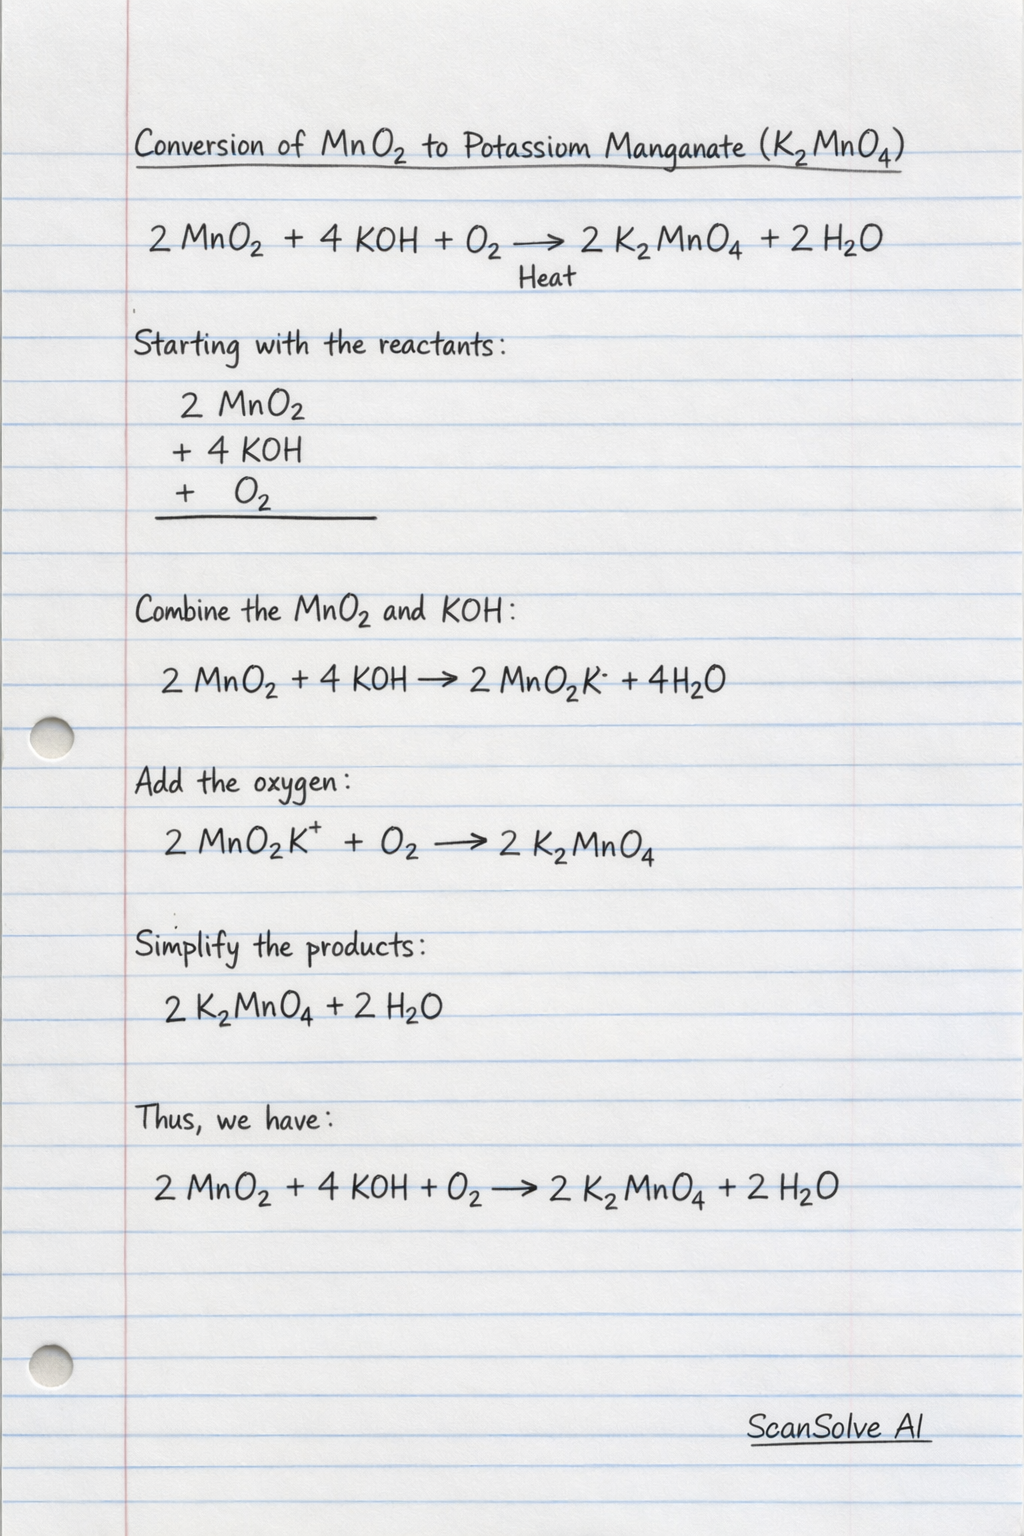 Conversion of MnO₂ to Potassiom Manganate (K₂MnO₄)
2 MnO₂ + 4 KOH + O₂ ⟶ 2 K₂MnO₄ + 2 H₂O
Heat
Starting with the reactants:
2 MnO₂
+ 4 KOH
+ O₂
Combine the MnO₂ and KOH:
2 MnO₂ + 4 KOH ⟶ 2 MnO₂K· + 4H₂O
Add the oxygen:
2 MnO₂K⁺ + O₂ ⟶ 2 K₂MnO₄
Simplify the products:
2 K₂MnO₄ + 2 H₂O
Thus, we have:
2 MnO₂ + 4 KOH + O₂ ⟶ 2 K₂MnO₄ + 2 H₂O
ScanSolve AI